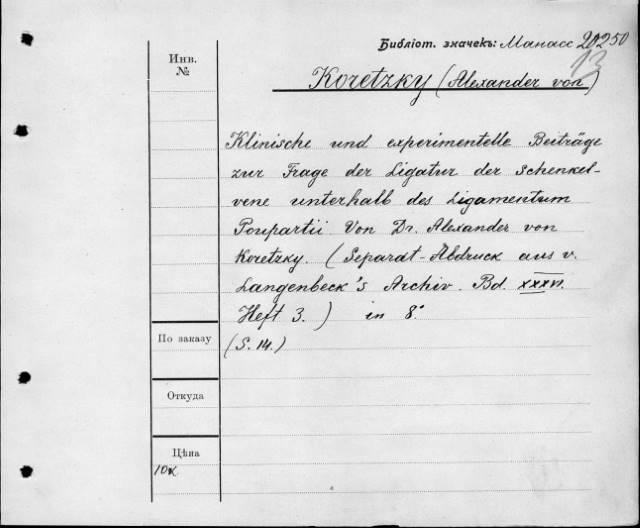 Библіот. значекъ: Манасс 20250
13
Инв.
№
Koretzky (Alexander von)
Klinische und experimentelle Beiträge
zur Frage der Ligatur der Schenkel-
vene unterhalb des Ligamentum
Poupartii Von Dr. Alexander von
Koretzky. (Separat-Abdruck aus v.
Langenbeck's Archiv. Bd. XXXVI.
Heft 3.) in 8°
(S. 14.)
По заказу
Откуда
Цѣна
10к